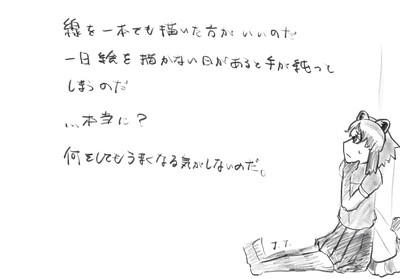 線を一本でも描いた方がいいのだ
一日絵を描かない日があると手が鈍って
しまうのだ
...本当に？
何をしてもうまくなる気がしないのだ。